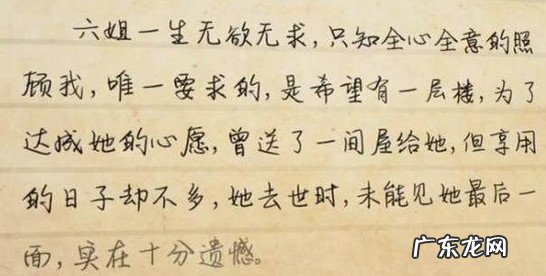 六姐一生无欲无求,只知全心全意的照
顾我,唯一要求的,是希望有一层楼,为了
达成她的心愿,曾送了一间屋给她,但享用
的日子却不多,她去世时,未能见她最后一
面,实在十分遗憾。
广东龙网